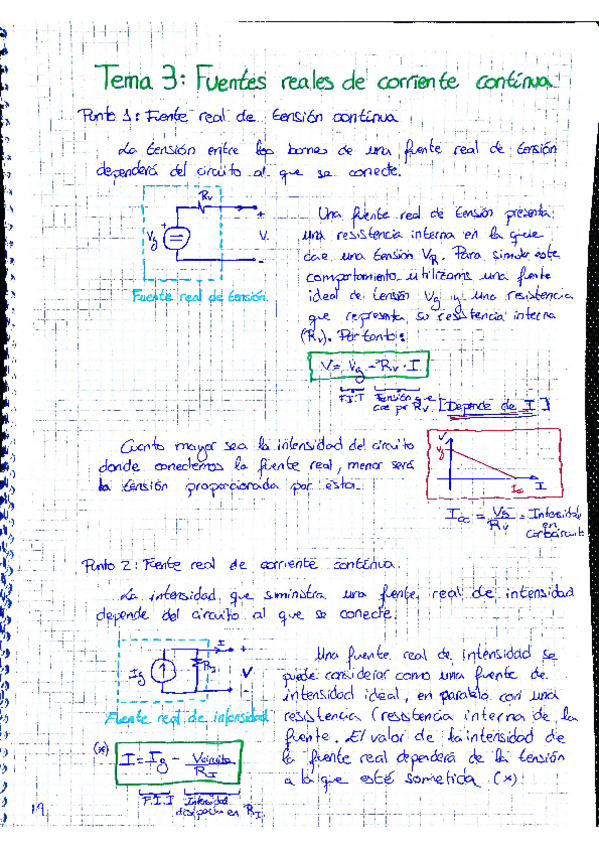 Tema 3: Fuentes reales de corriente contínua
Punto 1: Fuente real de tensión contínua
La tensión entre los bornes de una fuente real de tensión
dependerá del circuito al que se conecte.
Rv
+
Vg
+
V
-
Fuente real de tensión.
Una fuente real de tensión presenta
una resistencia interna en la que
cae una tensión VR. Para simular este
comportamiento utilizamos una fuente
ideal de tensión Vg y una resistencia
que representa su resistencia interna
(Rv). Por tanto:
V = Vg - Rv · I
F.I.T Tensión que
cae por Rv. [Depende de I]
Cuanto mayor sea la intensidad del circuito
donde conectemos la fuente real, menor será
la tensión proporcionada por esta.
V
Vg
Icc
I
Icc = Vg/Rv = Intensidad
en
cortocircuito
Punto 2: Fuente real de corriente contínua.
La intensidad que suministra una fuente real de intensidad
depende del circuito al que se conecte.
I
+
Ig
RI
V
-
Fuente real de intensidad
Una fuente real de intensidad se
puede considerar como una fuente de
intensidad ideal, en paralelo con una
resistencia (resistencia interna de la
fuente. El valor de la intensidad de
la fuente real dependerá de la tensión
a la que esté sometida (*)
(*)
I = Ig - Vcircuito/RI
F.I.I Intensidad
disipada en RI